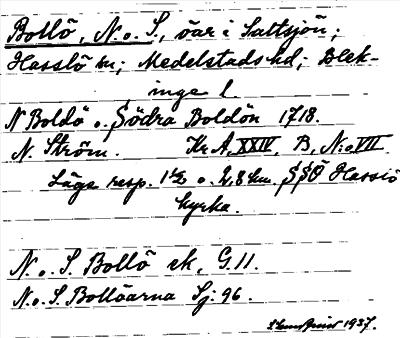 Bollö, N. o. S., öar i Saltsjön;
Hasslö sn; Medelstads hd; Blek-
inge l.
N Boldö o. Södra Boldön 1718.
N. Ström. Kr. A. XXIV, B, N:o VII
Läge resp. 1½ o. 2,8 km. SSÖ Hasslö
kyrka.
N. o. S. Bollö ek, G. 11.
N. o. S. Bollöarna Sj. 96.
1937.